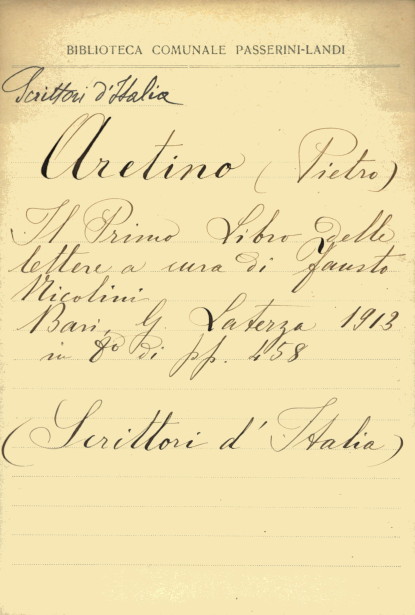 BIBLIOTECA COMUNALE PASSERINI-LANDI
Scrittori d'Italia
Aretino (Pietro)
Il Primo Libro delle
lettere a cura di Fausto
Nicolini
Bari, G. Laterza 1913
in 8º di pp. 458
(Scrittori d'Italia)